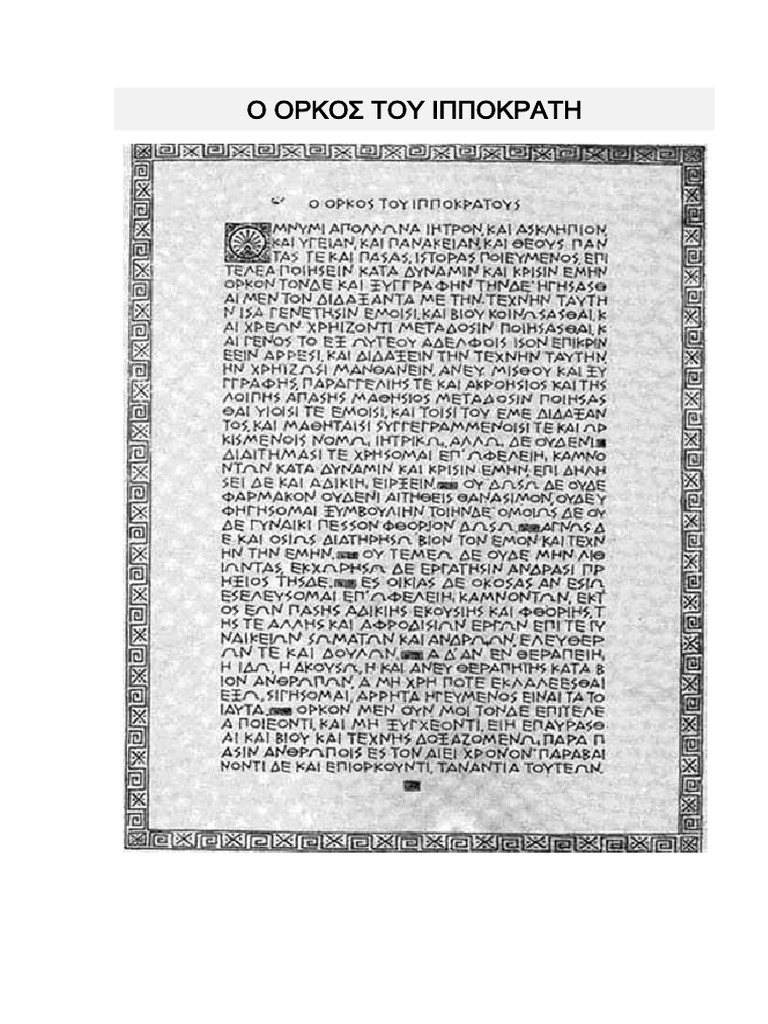 Ο ΟΡΚΟΣ ΤΟΥ ΙΠΠΟΚΡΑΤΗ
Ο ΟΡΚΟΣ ΤΟΥ ΙΠΠΟΚΡΑΤΟΥΣ
ΟΜΝΥΜΙ ΑΠΟΛΛΩΝΑ ΙΗΤΡΟΝ, ΚΑΙ ΑΣΚΛΗΠΙΟΝ,
ΚΑΙ ΥΓΕΙΑΝ, ΚΑΙ ΠΑΝΑΚΕΙΑΝ, ΚΑΙ ΘΕΟΥΣ ΠΑΝ
ΤΑΣ ΤΕ ΚΑΙ ΠΑΣΑΣ, ΙΣΤΟΡΑΣ ΠΟΙΕΥΜΕΝΟΣ, ΕΠΙ
ΤΕΛΕΑ ΠΟΙΗΣΕΙΝ ΚΑΤΑ ΔΥΝΑΜΙΝ ΚΑΙ ΚΡΙΣΙΝ ΕΜΗΝ
ΟΡΚΟΝ ΤΟΝΔΕ ΚΑΙ ΞΥΓΓΡΑΦΗΝ ΤΗΝΔΕ· ΗΓΗΣΑΣΘ
ΑΙ ΜΕΝ ΤΟΝ ΔΙΔΑΞΑΝΤΑ ΜΕ ΤΗΝ ΤΕΧΝΗΝ ΤΑΥΤΗ
Ν ΙΣΑ ΓΕΝΕΤΗΣΙΝ ΕΜΟΙΣΙ, ΚΑΙ ΒΙΟΥ ΚΟΙΝΩΣΑΣΘΑΙ, Κ
ΑΙ ΧΡΕΩΝ ΧΡΗΙΖΟΝΤΙ ΜΕΤΑΔΟΣΙΝ ΠΟΙΗΣΑΣΘΑΙ, Κ
ΑΙ ΓΕΝΟΣ ΤΟ ΕΞ ΩΥΤΕΟΥ ΑΔΕΛΦΟΙΣ ΙΣΟΝ ΕΠΙΚΡΙΝ
ΕΕΙΝ ΑΡΡΕΣΙ, ΚΑΙ ΔΙΔΑΞΕΙΝ ΤΗΝ ΤΕΧΝΗΝ ΤΑΥΤΗΝ,
ΗΝ ΧΡΗΙΖΩΣΙ ΜΑΝΘΑΝΕΙΝ, ΑΝΕΥ ΜΙΣΘΟΥ ΚΑΙ ΞΥ
ΓΓΡΑΦΗΣ, ΠΑΡΑΓΓΕΛΙΗΣ ΤΕ ΚΑΙ ΑΚΡΟΗΣΙΟΣ ΚΑΙ ΤΗΣ
ΛΟΙΠΗΣ ΑΠΑΣΗΣ ΜΑΘΗΣΙΟΣ ΜΕΤΑΔΟΣΙΝ ΠΟΙΗΣΑΣ
ΘΑΙ ΥΙΟΙΣΙ ΤΕ ΕΜΟΙΣΙ, ΚΑΙ ΤΟΙΣΙ ΤΟΥ ΕΜΕ ΔΙΔΑΞΑΝ
ΤΟΣ, ΚΑΙ ΜΑΘΗΤΑΙΣΙ ΣΥΓΓΕΓΡΑΜΜΕΝΟΙΣΙ ΤΕ ΚΑΙ ΩΡ
ΚΙΣΜΕΝΟΙΣ ΝΟΜΩ, ΙΗΤΡΙΚΩ, ΑΛΛΩ, ΔΕ ΟΥΔΕΝΙ.
ΔΙΑΙΤΗΜΑΣΙ ΤΕ ΧΡΗΣΟΜΑΙ ΕΠ' ΩΦΕΛΕΙΗ, ΚΑΜΝΟ
ΝΤΩΝ ΚΑΤΑ ΔΥΝΑΜΙΝ ΚΑΙ ΚΡΙΣΙΝ ΕΜΗΝ, ΕΠΙ ΔΗΛΗ
ΣΕΙ ΔΕ ΚΑΙ ΑΔΙΚΙΗ, ΕΙΡΞΕΙΝ. ΟΥ ΔΩΣΩ ΔΕ ΟΥΔΕ
ΦΑΡΜΑΚΟΝ ΟΥΔΕΝΙ ΑΙΤΗΘΕΙΣ ΘΑΝΑΣΙΜΟΝ, ΟΥΔΕ Υ
ΦΗΓΗΣΟΜΑΙ ΞΥΜΒΟΥΛΙΗΝ ΤΟΙΗΝΔΕ· ΟΜΟΙΩΣ ΔΕ ΟΥ
ΔΕ ΓΥΝΑΙΚΙ ΠΕΣΣΟΝ ΦΘΟΡΙΟΝ ΔΩΣΩ. ΑΓΝΩΣ Δ
Ε ΚΑΙ ΟΣΙΩΣ ΔΙΑΤΗΡΗΣΩ ΒΙΟΝ ΤΟΝ ΕΜΟΝ ΚΑΙ ΤΕΧΝ
ΗΝ ΤΗΝ ΕΜΗΝ. ΟΥ ΤΕΜΕΩ ΔΕ ΟΥΔΕ ΜΗΝ ΛΙΘ
ΙΩΝΤΑΣ, ΕΚΧΩΡΗΣΩ ΔΕ ΕΡΓΑΤΗΣΙΝ ΑΝΔΡΑΣΙ ΠΡ
ΗΞΙΟΣ ΤΗΣΔΕ. ΕΣ ΟΙΚΙΑΣ ΔΕ ΟΚΟΣΑΣ ΑΝ ΕΣΙΩ
ΕΣΕΛΕΥΣΟΜΑΙ ΕΠ' ΩΦΕΛΕΙΗ, ΚΑΜΝΟΝΤΩΝ, ΕΚΤ
ΟΣ ΕΩΝ ΠΑΣΗΣ ΑΔΙΚΙΗΣ ΕΚΟΥΣΙΗΣ ΚΑΙ ΦΘΟΡΙΗΣ, Τ
ΗΣ ΤΕ ΑΛΛΗΣ ΚΑΙ ΑΦΡΟΔΙΣΙΩΝ ΕΡΓΩΝ ΕΠΙ ΤΕ ΓΥ
ΝΑΙΚΕΙΩΝ ΣΩΜΑΤΩΝ ΚΑΙ ΑΝΔΡΩΩΝ, ΕΛΕΥΘΕΡ
ΩΝ ΤΕ ΚΑΙ ΔΟΥΛΩΝ. Α Δ' ΑΝ ΕΝ ΘΕΡΑΠΕΙΗ,
Η ΙΔΩ, Η ΑΚΟΥΣΩ, Η ΚΑΙ ΑΝΕΥ ΘΕΡΑΠΗΙΗΣ ΚΑΤΑ Β
ΙΟΝ ΑΝΘΡΩΠΩΝ, Α ΜΗ ΧΡΗ ΠΟΤΕ ΕΚΛΑΛΕΕΣΘΑΙ
ΕΞΩ, ΣΙΓΗΣΟΜΑΙ, ΑΡΡΗΤΑ ΗΓΕΥΜΕΝΟΣ ΕΙΝΑΙ ΤΑ ΤΟ
ΙΑΥΤΑ. ΟΡΚΟΝ ΜΕΝ ΟΥΝ ΜΟΙ ΤΟΝΔΕ ΕΠΙΤΕΛΕ
Α ΠΟΙΕΟΝΤΙ, ΚΑΙ ΜΗ ΞΥΓΧΕΟΝΤΙ, ΕΙΗ ΕΠΑΥΡΑΣΘ
ΑΙ ΚΑΙ ΒΙΟΥ ΚΑΙ ΤΕΧΝΗΣ ΔΟΞΑΖΟΜΕΝΩ, ΠΑΡΑ Π
ΑΣΙΝ ΑΝΘΡΩΠΟΙΣ ΕΣ ΤΟΝ ΑΙΕΙ ΧΡΟΝΟΝ· ΠΑΡΑΒΑΙ
ΝΟΝΤΙ ΔΕ ΚΑΙ ΕΠΙΟΡΚΟΥΝΤΙ, ΤΑΝΑΝΤΙΑ ΤΟΥΤΕΩΝ.